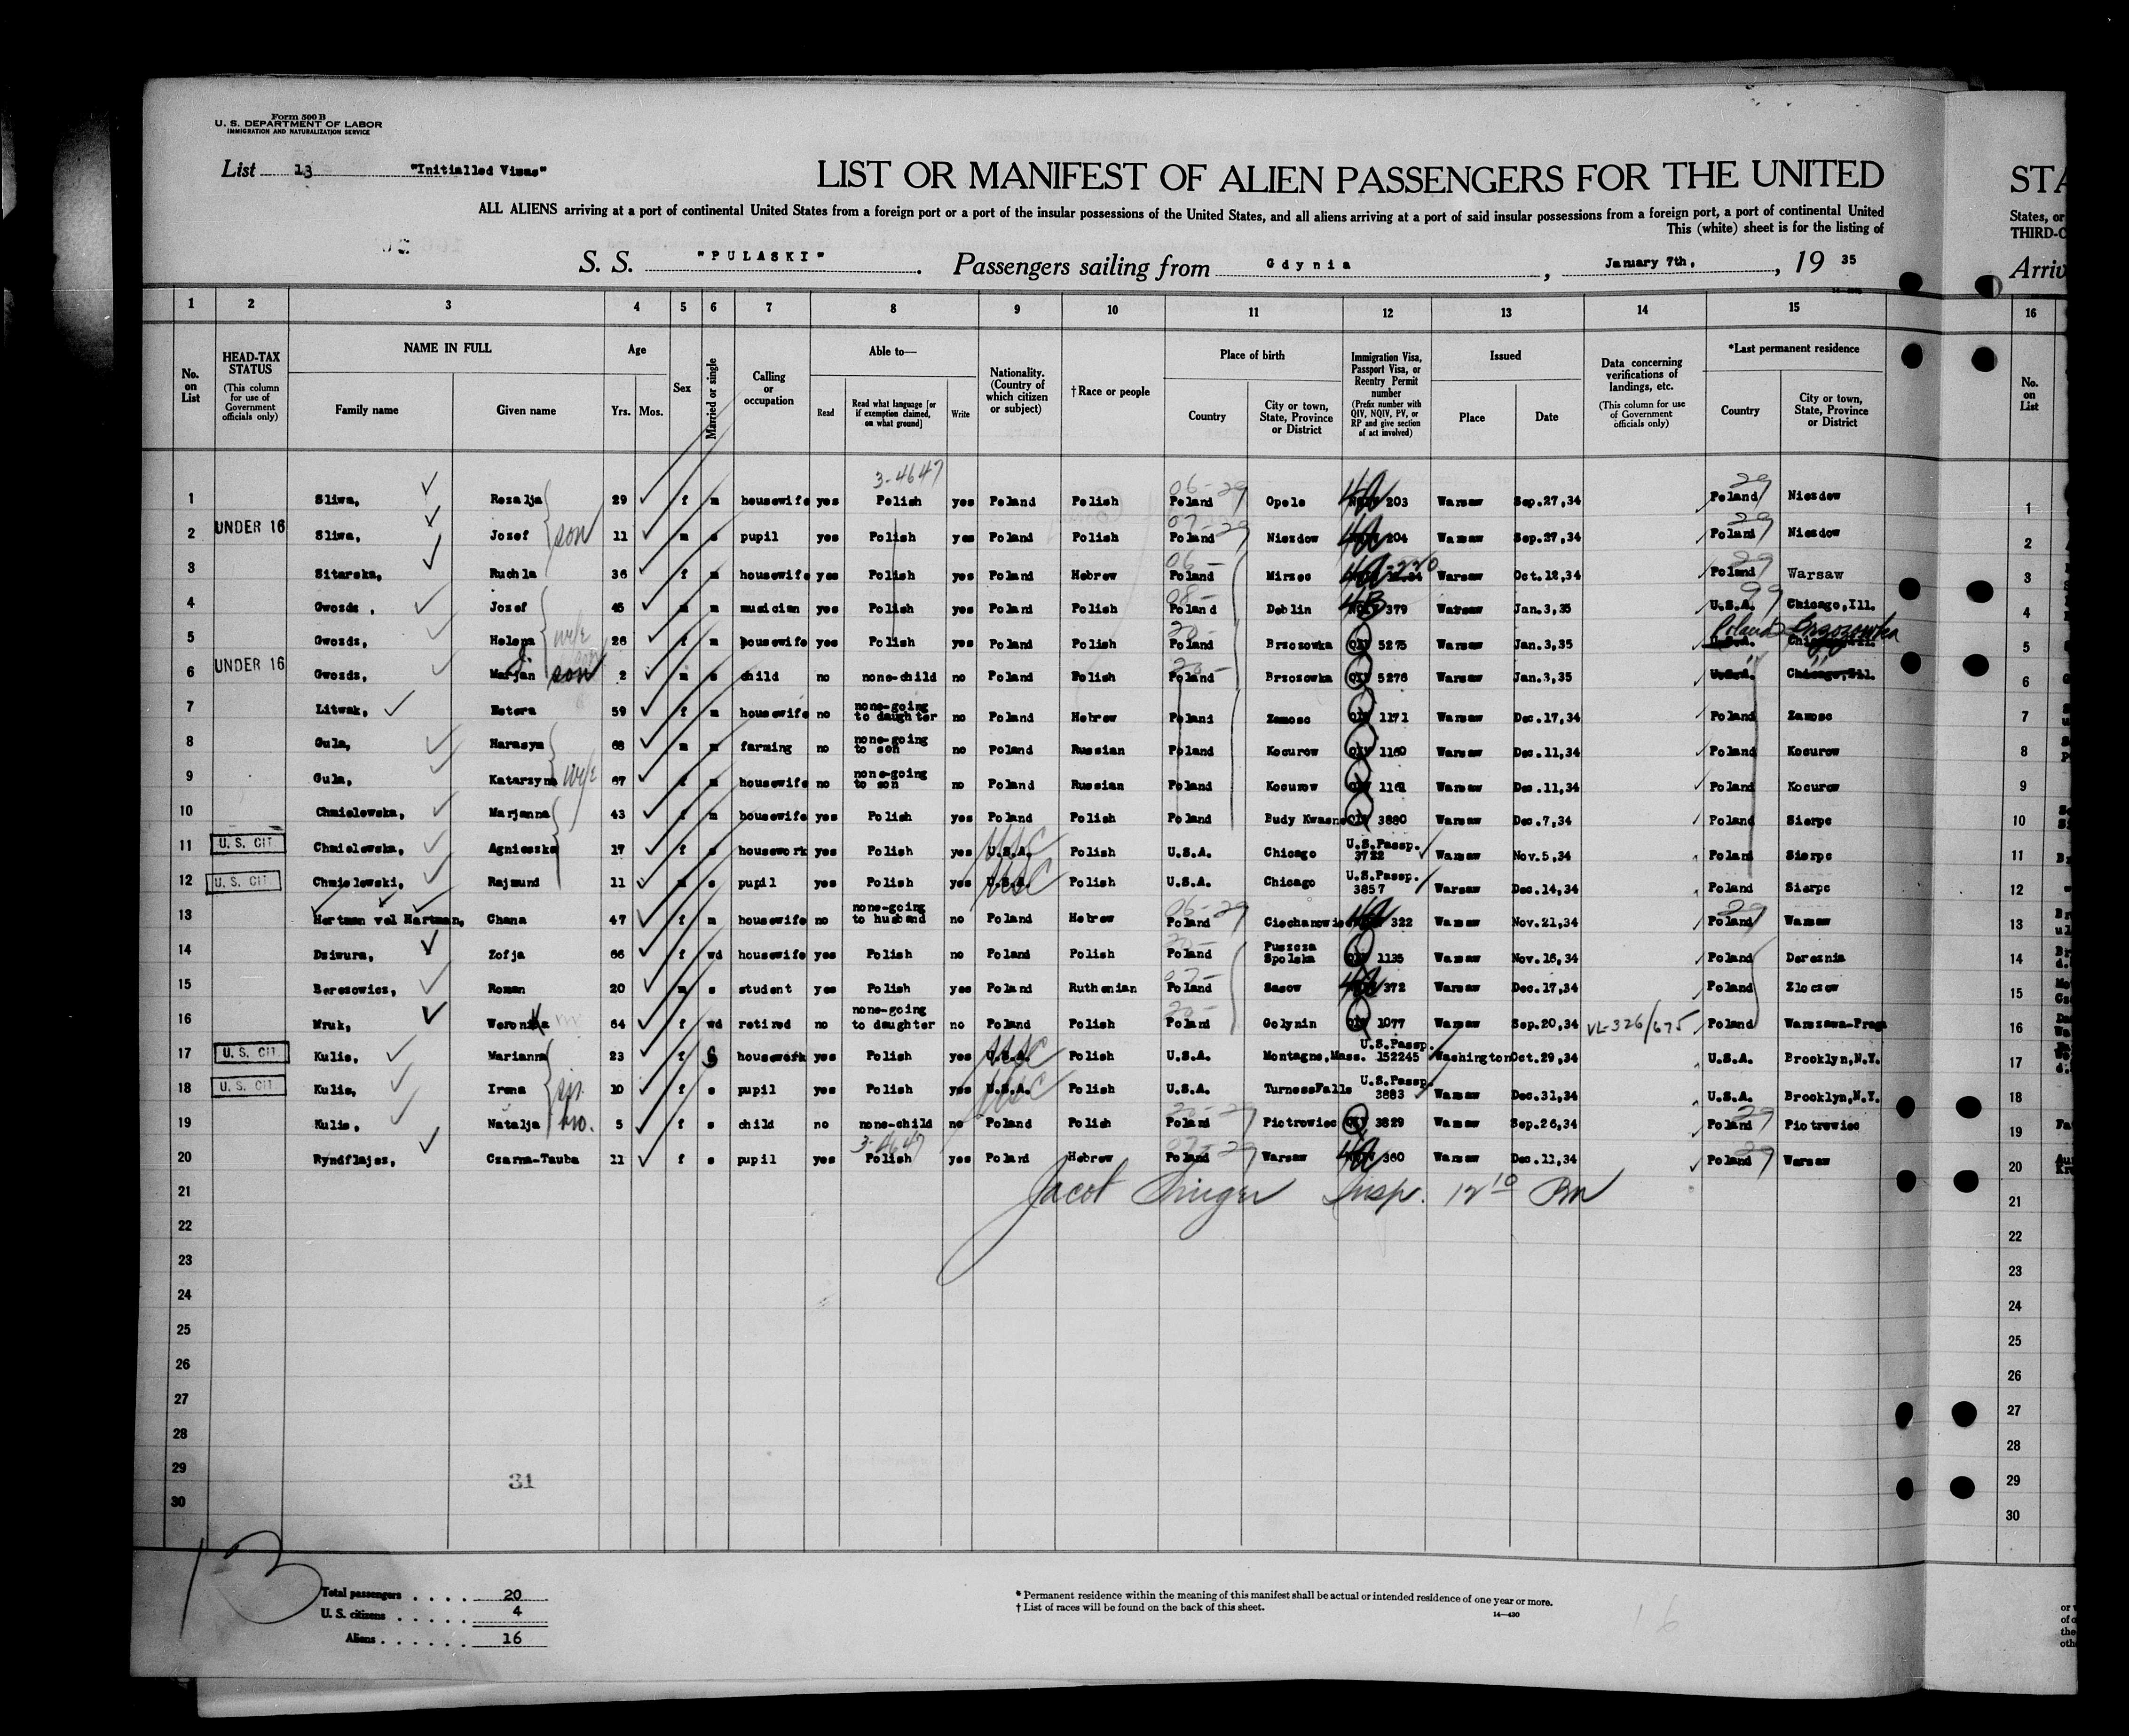 Form 500 B
U. S. DEPARTMENT OF LABOR
IMMIGRATION AND NATURALIZATION SERVICE
List 13 "Initialled Visas"
LIST OR MANIFEST OF ALIEN PASSENGERS FOR THE UNITED
STA
ALL ALIENS arriving at a port of continental United States from a foreign port or a port of the insular possessions of the United States, and all aliens arriving at a port of said insular possessions from a foreign port, a port of continental United
States, or
This (white) sheet is for the listing of
THIRD-C
S. S. "PULASKI". Passengers sailing from Gdynia, January 7th., 19 35
Arriv
1 2 3 4 5 6 7 8 9 10 11 12 13 14 15 16
No. on List
HEAD-TAX STATUS (This column for use of Government officials only)
NAME IN FULL
Family name Given name
Age
Yrs. Mos.
Sex
Married or single
Calling or occupation
Able to—
Read Read what language [or if exemption claimed, on what ground] Write
Nationality. (Country of which citizen or subject)
†Race or people
Place of birth
Country City or town, State, Province or District
Immigration Visa, Passport Visa, or Reentry Permit number (Prefix number with QIV, NQIV, PV, or RP and give section of act involved)
Issued
Place Date
Data concerning verifications of landings, etc. (This column for use of Government officials only)
*Last permanent residence
Country City or town, State, Province or District
No. on List
3-4647
1 Sliwa, Rozalja 29 f m housewife yes Polish yes Poland Polish Poland 06-29 Opole 4a 203 Warsaw Sep.27,34 Poland 29 Niezdow 1
2 UNDER 16 Sliwa, Jozef son 11 m s pupil yes Polish yes Poland Polish Poland 07-29 Niezdow 4a 204 Warsaw Sep.27,34 Poland 29 Niezdow 2
3 Sitarska, Ruchla 36 f m housewife yes Polish yes Poland Hebrew Poland 06- Mirzec 4a Warsaw Oct.12,34 Poland 29 Warsaw 3
4 Gwozdz, Jozef 45 m m musician yes Polish yes Poland Polish Poland 08- Deblin 4B 379 Warsaw Jan.3,35 U.S.A. 99 Chicago,Ill. 4
5 Gwozdz, Helena wife 26 f m housewife yes Polish yes Poland Polish Poland 20- Brzozowka QIV 5275 Warsaw Jan.3,35 U.S.A. Poland Brzozowka 5
6 UNDER 16 Gwozdz, Marjan J. son 2 m s child no none-child no Poland Polish Poland 20- Brzozowka QIV 5276 Warsaw Jan.3,35 U.S.A. " Chicago,Ill. " 6
7 Litwak, Estera 59 f m housewife no none-going to daughter no Poland Hebrew Poland Zamosc QIV 1171 Warsaw Dec.17,34 Poland Zamosc 7
8 Gula, Harasym 68 m m farming no none-going to son no Poland Russian Poland Kocurow QIV 1160 Warsaw Dec.11,34 Poland Kocurow 8
9 Gula, Katarzyna wife 67 f m housewife no none-going to son no Poland Russian Poland Kocurow QIV 1161 Warsaw Dec.11,34 Poland Kocurow 9
10 Chmielewska, Marjanna 43 f m housewife yes Polish yes Poland Polish Poland Budy Kwasne QIV 3880 Warsaw Dec.7,34 Poland Sierpc 10
11 U. S. CIT. Chmielewska, Agnieszka 17 f s housework yes Polish yes U.S.A. USC Polish U.S.A. Chicago U.S.Passp. 3722 Warsaw Nov.5,34 Poland Sierpc 11
12 U. S. CIT. Chmielewski, Rajmund 11 m s pupil yes Polish yes U.S.A. USC Polish U.S.A. Chicago U.S.Passp. 3857 Warsaw Dec.14,34 Poland Sierpc 12
13 Hertman vel Hartman, Chana 47 f m housewife no none-going to husband no Poland Hebrew Poland 06-29 4a 322 Warsaw Nov.21,34 Poland 29 Warsaw 13
14 Dziwura, Zofja 66 f wd housewife yes Polish no Poland Polish Poland 20- Puszcza Spolska QIV 1135 Warsaw Nov.16,34 Poland Dereznia 14
15 Berezowicz, Roman 20 m s student yes Polish yes Poland Ruthenian Poland 07- Sasow 4a 372 Warsaw Dec.17,34 Poland Zloczow 15
16 Mruk, Weronika 64 f wd retired no none-going to daughter no Poland Polish Poland 20- Golynin QIV 1077 Warsaw Sep.20,34 VL-326/675 Poland Warszawa-Praga 16
17 U. S. CIT. Kulis, Marianna 23 f S housework yes Polish yes U.S.A. USC Polish U.S.A. Montagne,Mass. U.S.Passp. 152245 Washington Oct.29,34 U.S.A. Brooklyn,N.Y. 17
18 U. S. CIT. Kulis, Irena sis. 10 f s pupil yes Polish yes U.S.A. USC Polish U.S.A. TurnessFalls U.S.Passp. 3883 Warsaw Dec.31,34 U.S.A. Brooklyn,N.Y. 18
19 Kulis, Natalja 5 f s child no none-child no Poland Polish Poland 20-29 Piotrowiec QIV 3829 Warsaw Sep.26,34 Poland 29 Piotrowiec 19
3-4647
20 Ryndflajsz, Czarna-Tauba 11 f s pupil yes Polish yes Poland Hebrew Poland 07-29 Warsaw 4a 360 Warsaw Dec.11,34 Poland 29 Warsaw 20
21 Jacob Singer Insp. 12 10 Pm 21
22 22
23 23
24 24
25 25
26 26
27 27
28 28
29 31 29
30 30
13
Total passengers . . . . 20
U. S. citizens . . . . . 4
Aliens . . . . . . 16
* Permanent residence within the meaning of this manifest shall be actual or intended residence of one year or more.
† List of races will be found on the back of this sheet.
14—430
16